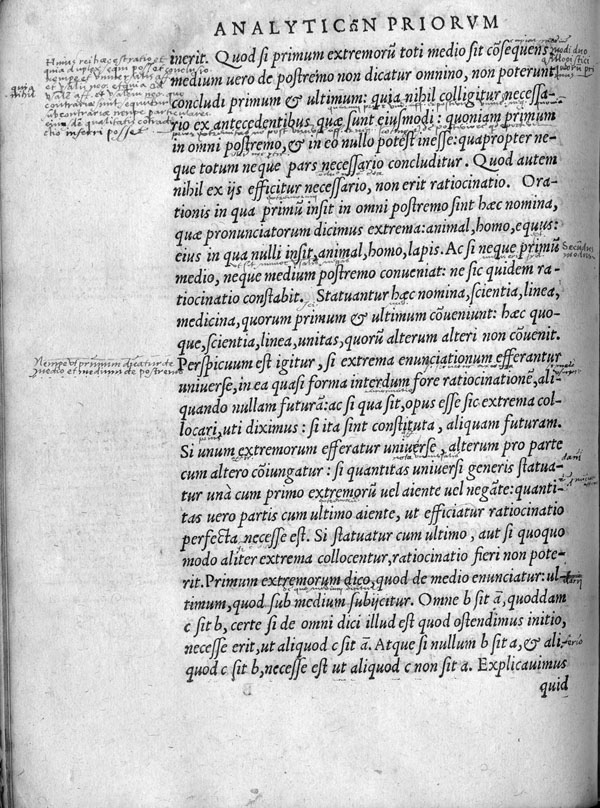 ANALYTICῶN PRIORVM
inerit. Quod si primum extremorũ toti medio sit cõsequens,
medium uero de postremo non dicatur omnino, non poterunt
concludi primum & ultimum: quia nihil colligitur necessa-
rio ex antecedentibus, quæ sunt eiusmodi: quoniam primum
in omni postremo, & in eo nullo potest inesse: quapropter ne-
que totum neque pars necessario concluditur. Quod autem
nihil ex ijs efficitur necessario, non erit ratiocinatio. Ora-
tionis in qua primũ insit in omni postremo sint hæc nomina,
quæ pronunciatorum dicimus extrema: animal, homo, equus:
eius in qua nulli insit, animal, homo, lapis. Ac si neque primũ
medio, neque medium postremo conueniat: ne sic quidem ra-
tiocinatio constabit. Statuantur hæc nomina, scientia, linea,
medicina, quorum primum & ultimum cõueniunt: hæc quo-
que, scientia, linea, unitas, quorũ alterum alteri non cõuenit.
Perspicuum est igitur, si extrema enunciationum efferantur
uniuerse, in ea quasi forma interdum fore ratiocinationẽ, ali-
quando nullam futurã: ac si qua sit, opus esse sic extrema col-
locari, uti diximus: si ita sint constituta, aliquam futuram.
Si unum extremorum efferatur uniuerse, alterum pro parte
cum altero cõiungatur: si quantitas uniuersi generis statua-
tur unà cum primo extremorũ uel aiente uel negãte: quanti-
tas uero partis cum ultimo aiente, ut efficiatur ratiocinatio
perfecta necesse est. Si statuatur cum ultimo, aut si quoquo
modo aliter extrema collocentur, ratiocinatio fieri non pote-
rit. Primum extremorum dico, quod de medio enunciatur: ul-
timum, quod sub medium subijcitur. Omne b sit ã, quoddam
c sit b, certe si de omni dici illud est quod ostendimus initio,
necesse erit, ut aliquod c sit ã. Atque si nullum b sit a, & ali-
quod c sit b, necesse est ut aliquod c non sit a. Explicauimus
quid
Nempe ut primum dicatur de
medio et medium de postremo
ferio